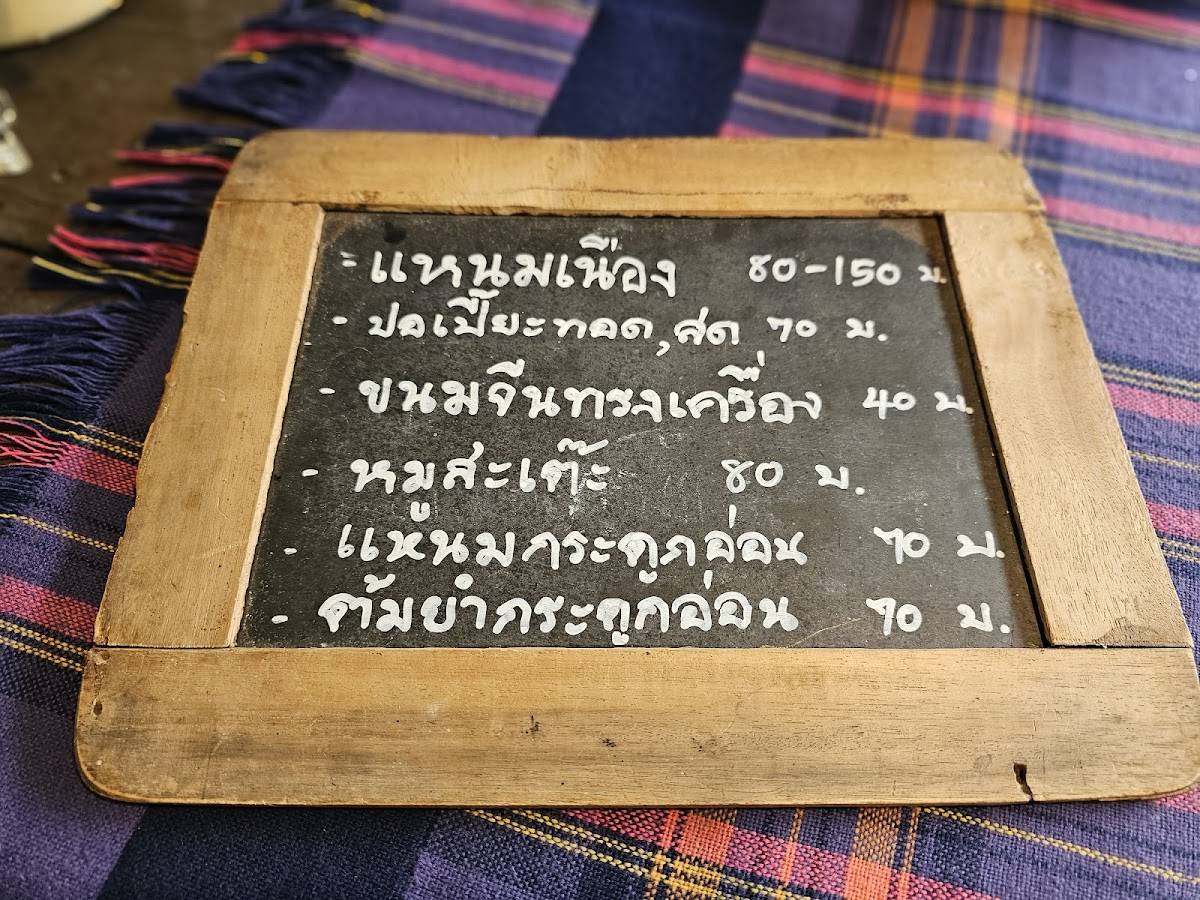 - แหนมเนือง 80-150 บ.
- ปอเปี๊ยะทอด,สด 70 บ.
- ขนมจีนทรงเครื่อง 40 บ.
- หมูสะเต๊ะ 80 บ.
- แหนมกระดูกอ่อน 70 บ.
- ต้มยำกระดูกอ่อน 70 บ.